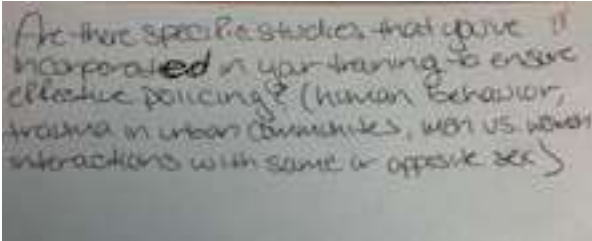 Are there specific studies that you've
incorporated in your traning to ensure
effective policing? (human Behavior,
trauma in urban Communites, men vs. women
interactions with same or opposite sex)